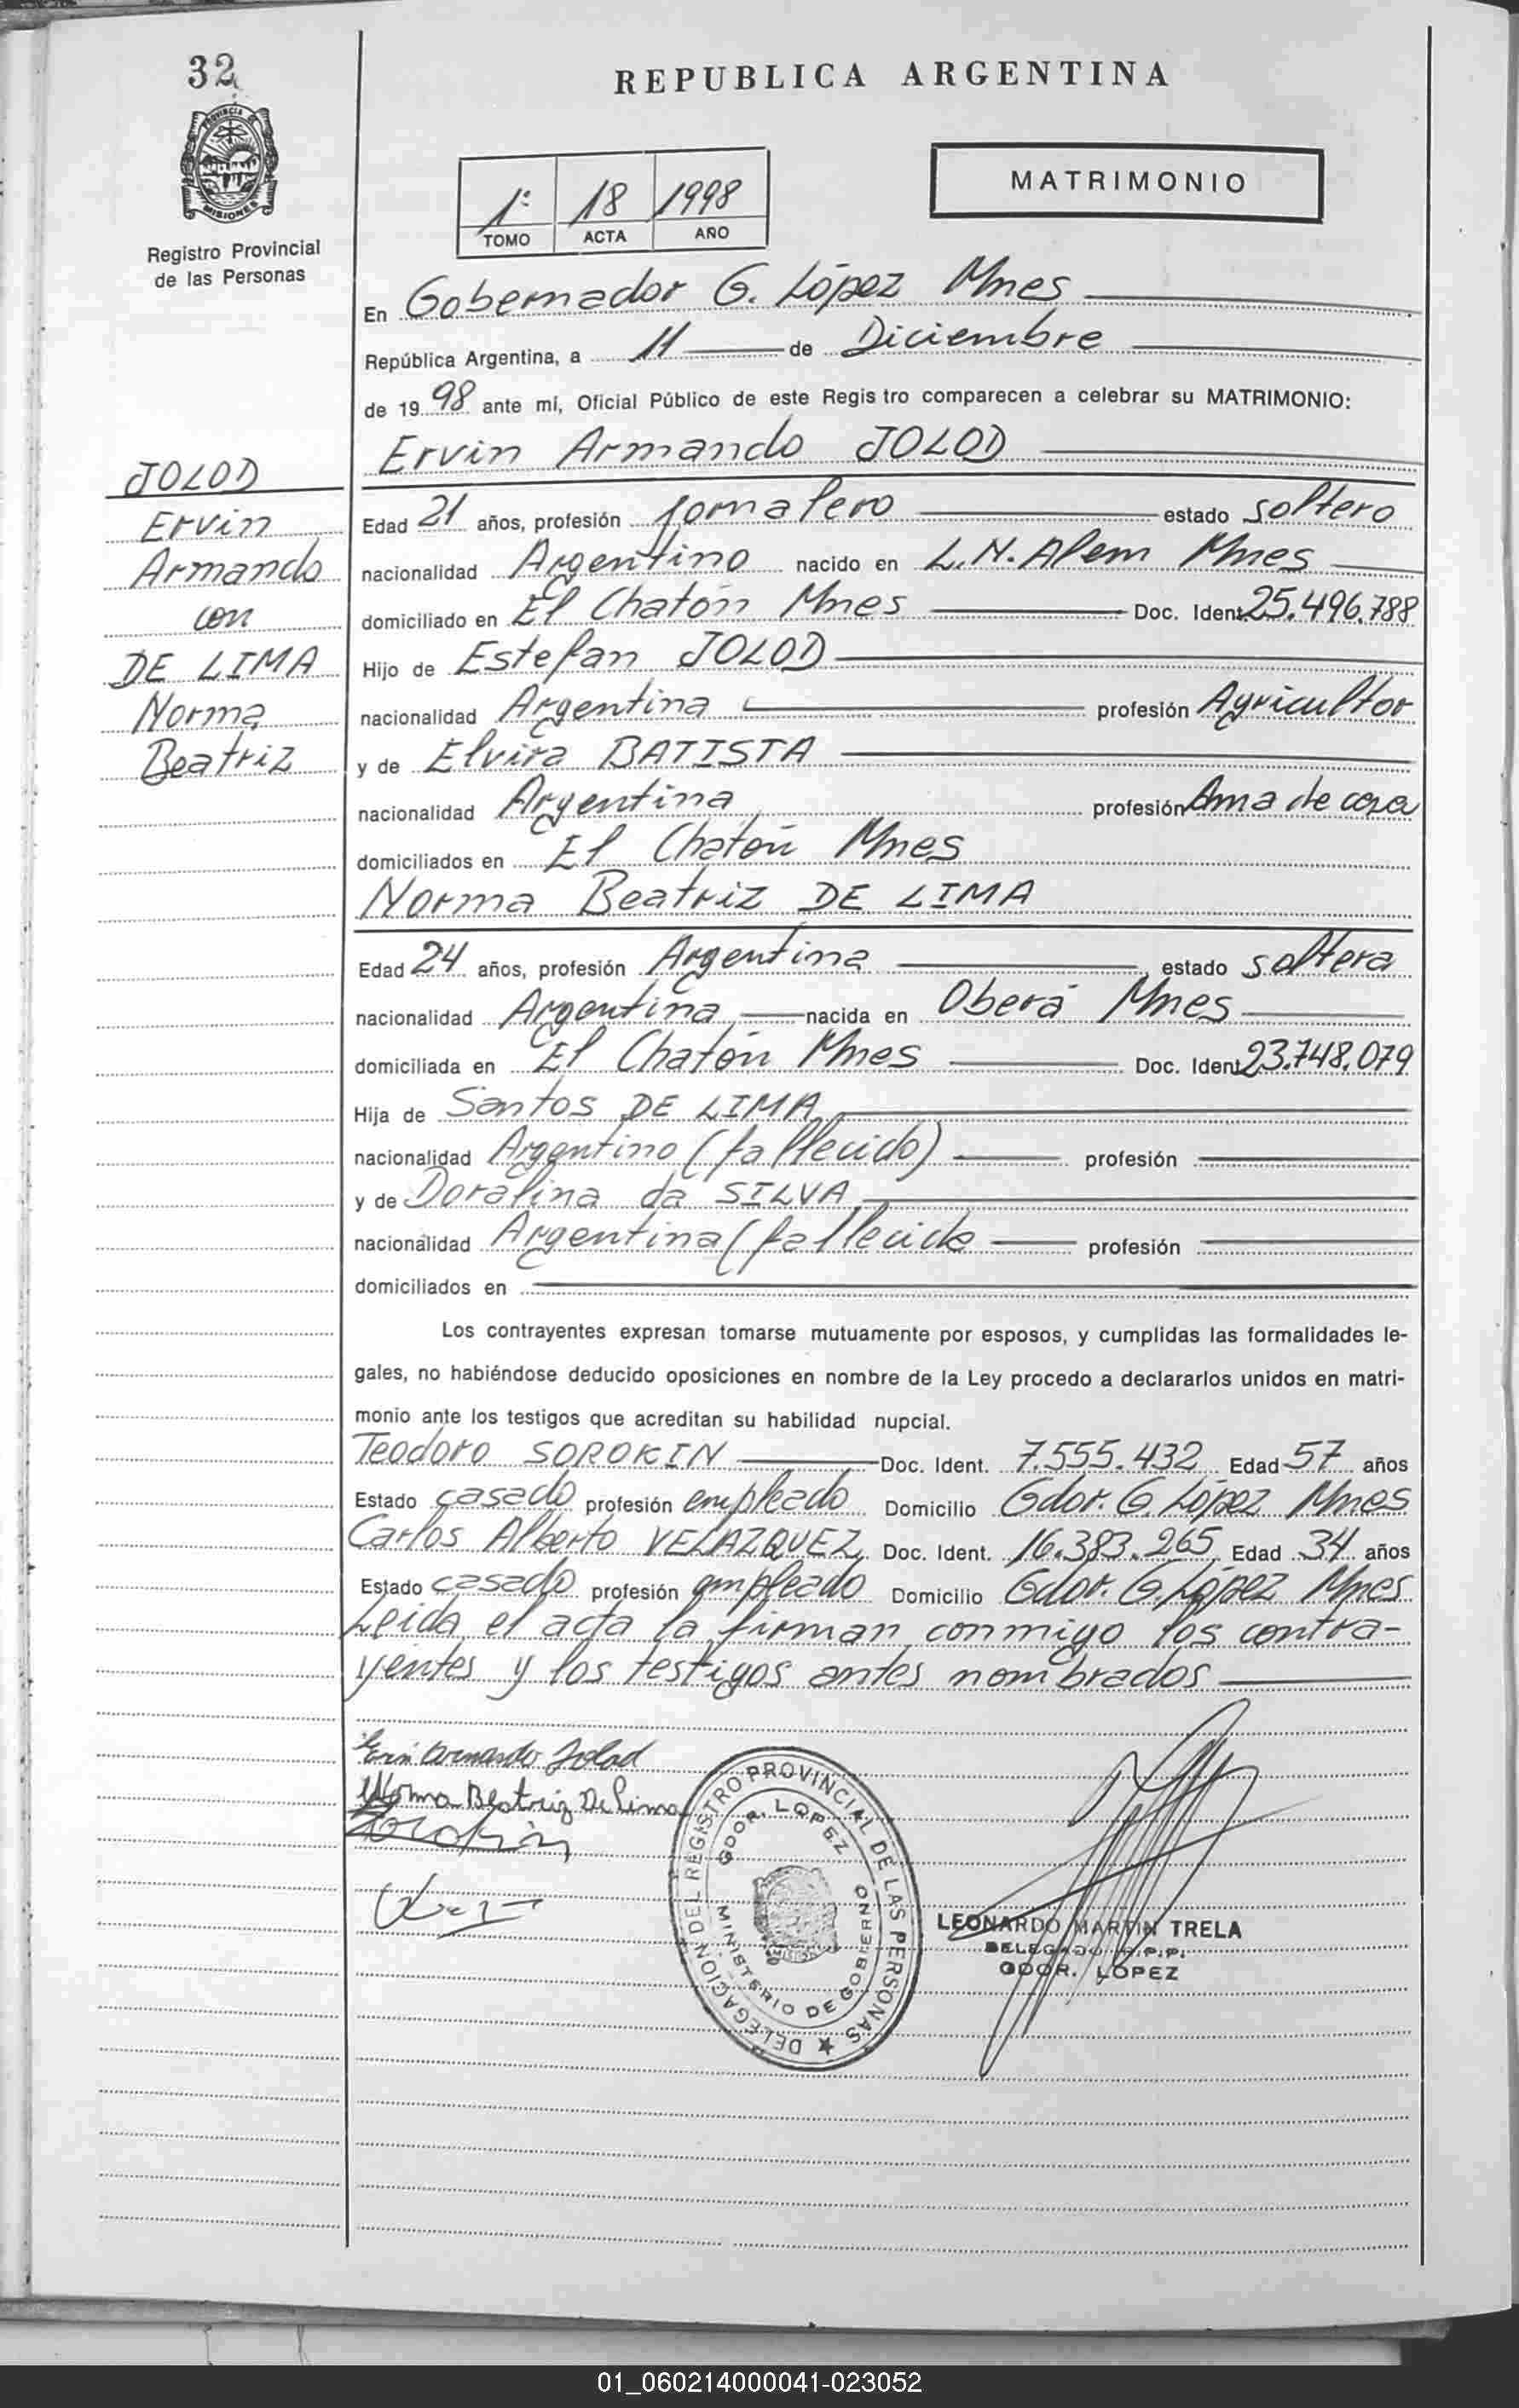 32
REPUBLICA ARGENTINA
PROVINCIA DE
MISIONES
Registro Provincial
de las Personas
1º 18 1998
TOMO ACTA AÑO
MATRIMONIO
En Gobernador G. López Mnes
República Argentina, a 11 de Diciembre
de 1998 ante mí, Oficial Público de este Regis tro comparecen a celebrar su MATRIMONIO:
Ervin Armando JOLOD
JOLOD
Ervin
Armando
con
DE LIMA
Norma
Beatriz
Edad 21 años, profesión jornalero estado soltero
nacionalidad Argentino nacido en L.N. Alem Mnes
domiciliado en El Chatón Mnes Doc. Ident. 25.496.788
Hijo de Estefan JOLOD
nacionalidad Argentina profesión Agricultor
y de Elvira BATISTA
nacionalidad Argentina profesión Ama de casa
domiciliados en El Chatón Mnes
Norma Beatriz DE LIMA
Edad 24 años, profesión Argentina estado soltera
nacionalidad Argentina nacida en Oberá Mnes
domiciliada en El Chatón Mnes Doc. Ident. 23.748.079
Hija de Santos DE LIMA
nacionalidad Argentino (fallecido) profesión
y de Doralina da SILVA
nacionalidad Argentina (fallecida profesión
domiciliados en
Los contrayentes expresan tomarse mutuamente por esposos, y cumplidas las formalidades le-
gales, no habiéndose deducido oposiciones en nombre de la Ley procedo a declararlos unidos en matri-
monio ante los testigos que acreditan su habilidad nupcial.
Teodoro SOROKIN Doc. Ident. 7.555.432 Edad 57 años
Estado casado profesión empleado Domicilio Gdor. G. López Mnes
Carlos Alberto VELAZQUEZ Doc. Ident. 16.383.265 Edad 34 años
Estado casado profesión empleado Domicilio Gdor. G. López Mnes
Leida el acta la firman conmigo los contra-
yentes y los testigos antes nombrados
Ervin Armando Jolod
Norma Beatriz De Lima
Sorokin
DELEGACION DEL REGISTRO PROVINCIAL DE LAS PERSONAS
GDOR. LOPEZ
MINISTERIO DE GOBIERNO
LEONARDO MARTIN TRELA
DELEGADO R.P.P.
GDOR. LOPEZ
01_060214000041-023052